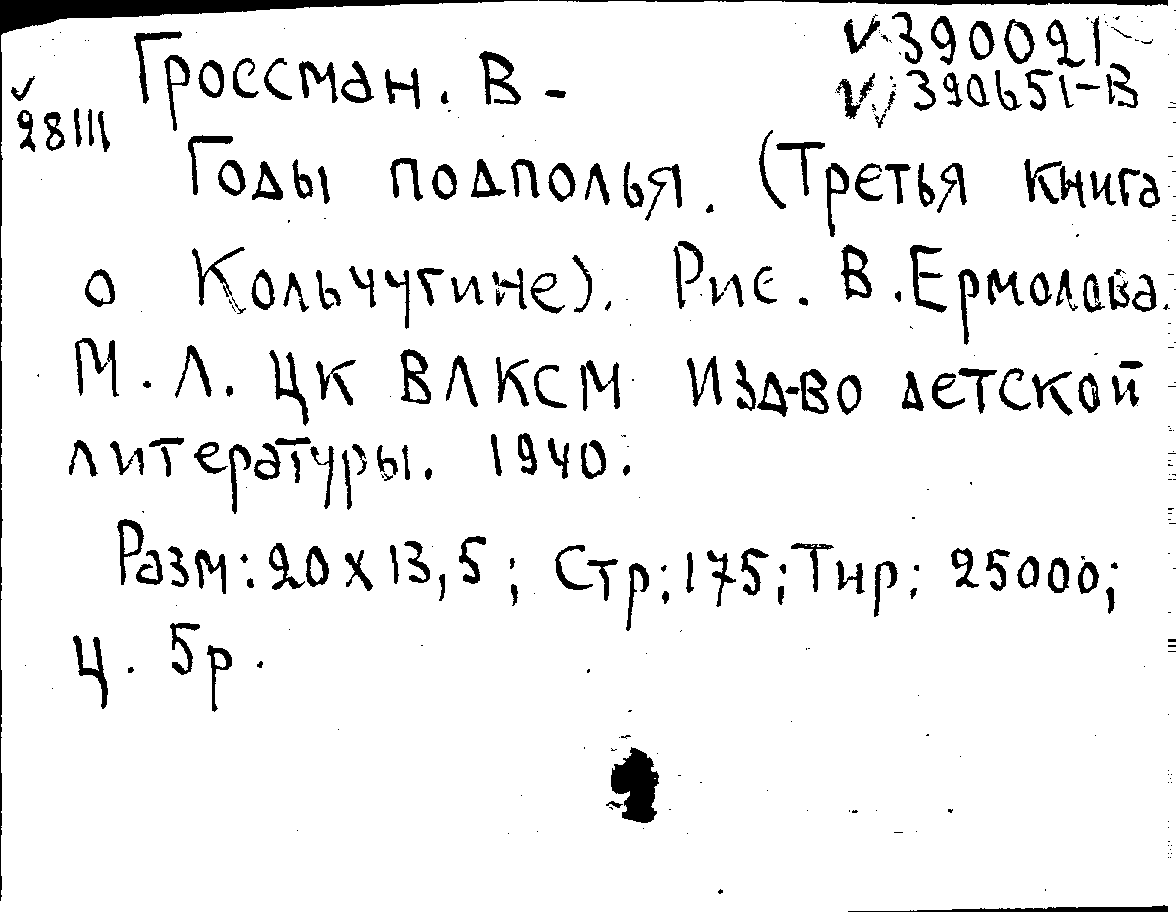 V 390021
Гроссман. В -
V 390651-В
28III
Годы подполья. (Третья книга
о Кольчугине). Рис. В. Ермолова.
М. Л. ЦК ВЛКСМ Изд-во детской
литературы. 1940.
Разм: 20 x 13,5 ; Стр: 175; Тир: 25000;
Ц. 5р.